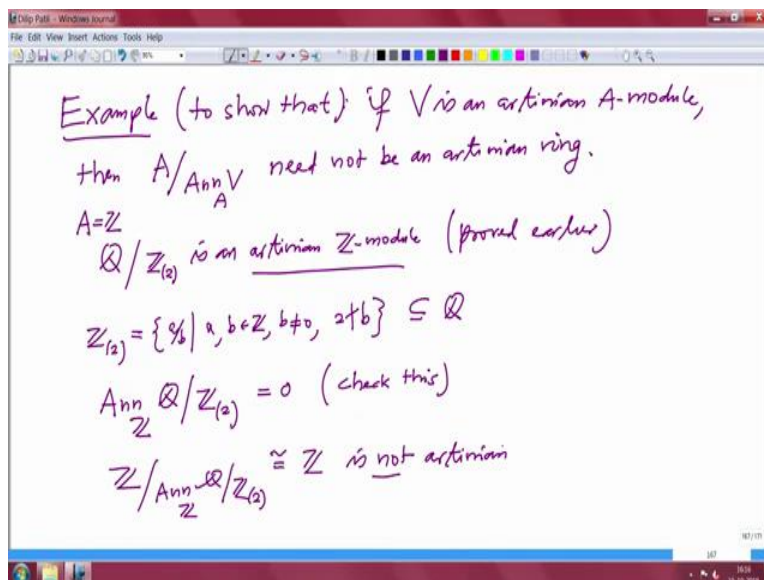 Dilip Patil - Windows Journal
File Edit View Insert Actions Tools Help
Example (to show that) if V is an artinian A-module,
then A/Ann_A V need not be an artinian ring.
A=ℤ
ℚ/ℤ_(2) is an artinian ℤ-module (proved earlier)
ℤ_(2) = {a/b | a, b ∈ ℤ, b≠0, 2∤b} ⊆ ℚ
Ann_ℤ ℚ/ℤ_(2) = 0 (check this)
ℤ/Ann_ℤ ℚ/ℤ_(2) ≅ ℤ is not artinian
167/171
167
16:16